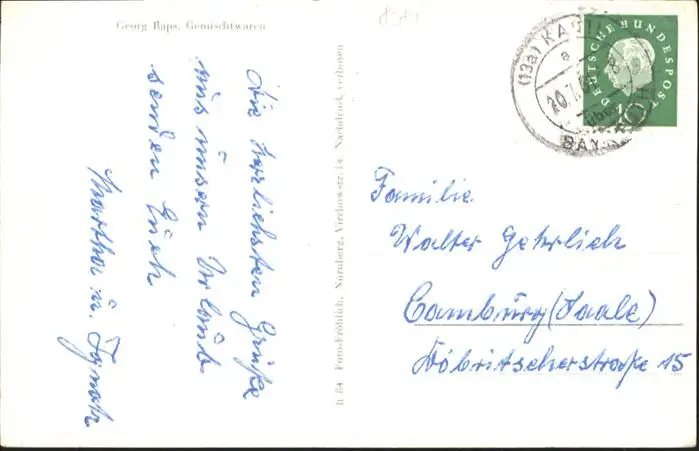 Georg Raps, Gemischtwaren
Die herzlichsten Grüße
aus unsern Urlaub
senden Euch
Martha u. Ignatz
h 84 Foto-Fröhlich, Nürnberg, Virchowstr. 14 Nachdruck verboten
DEUTSCHE BUNDESPOST
10
(13a)
20.7.
über
BAY
Familie
Walter Gehrlich
Camburg (Saale)
Döbritscherstraße 15